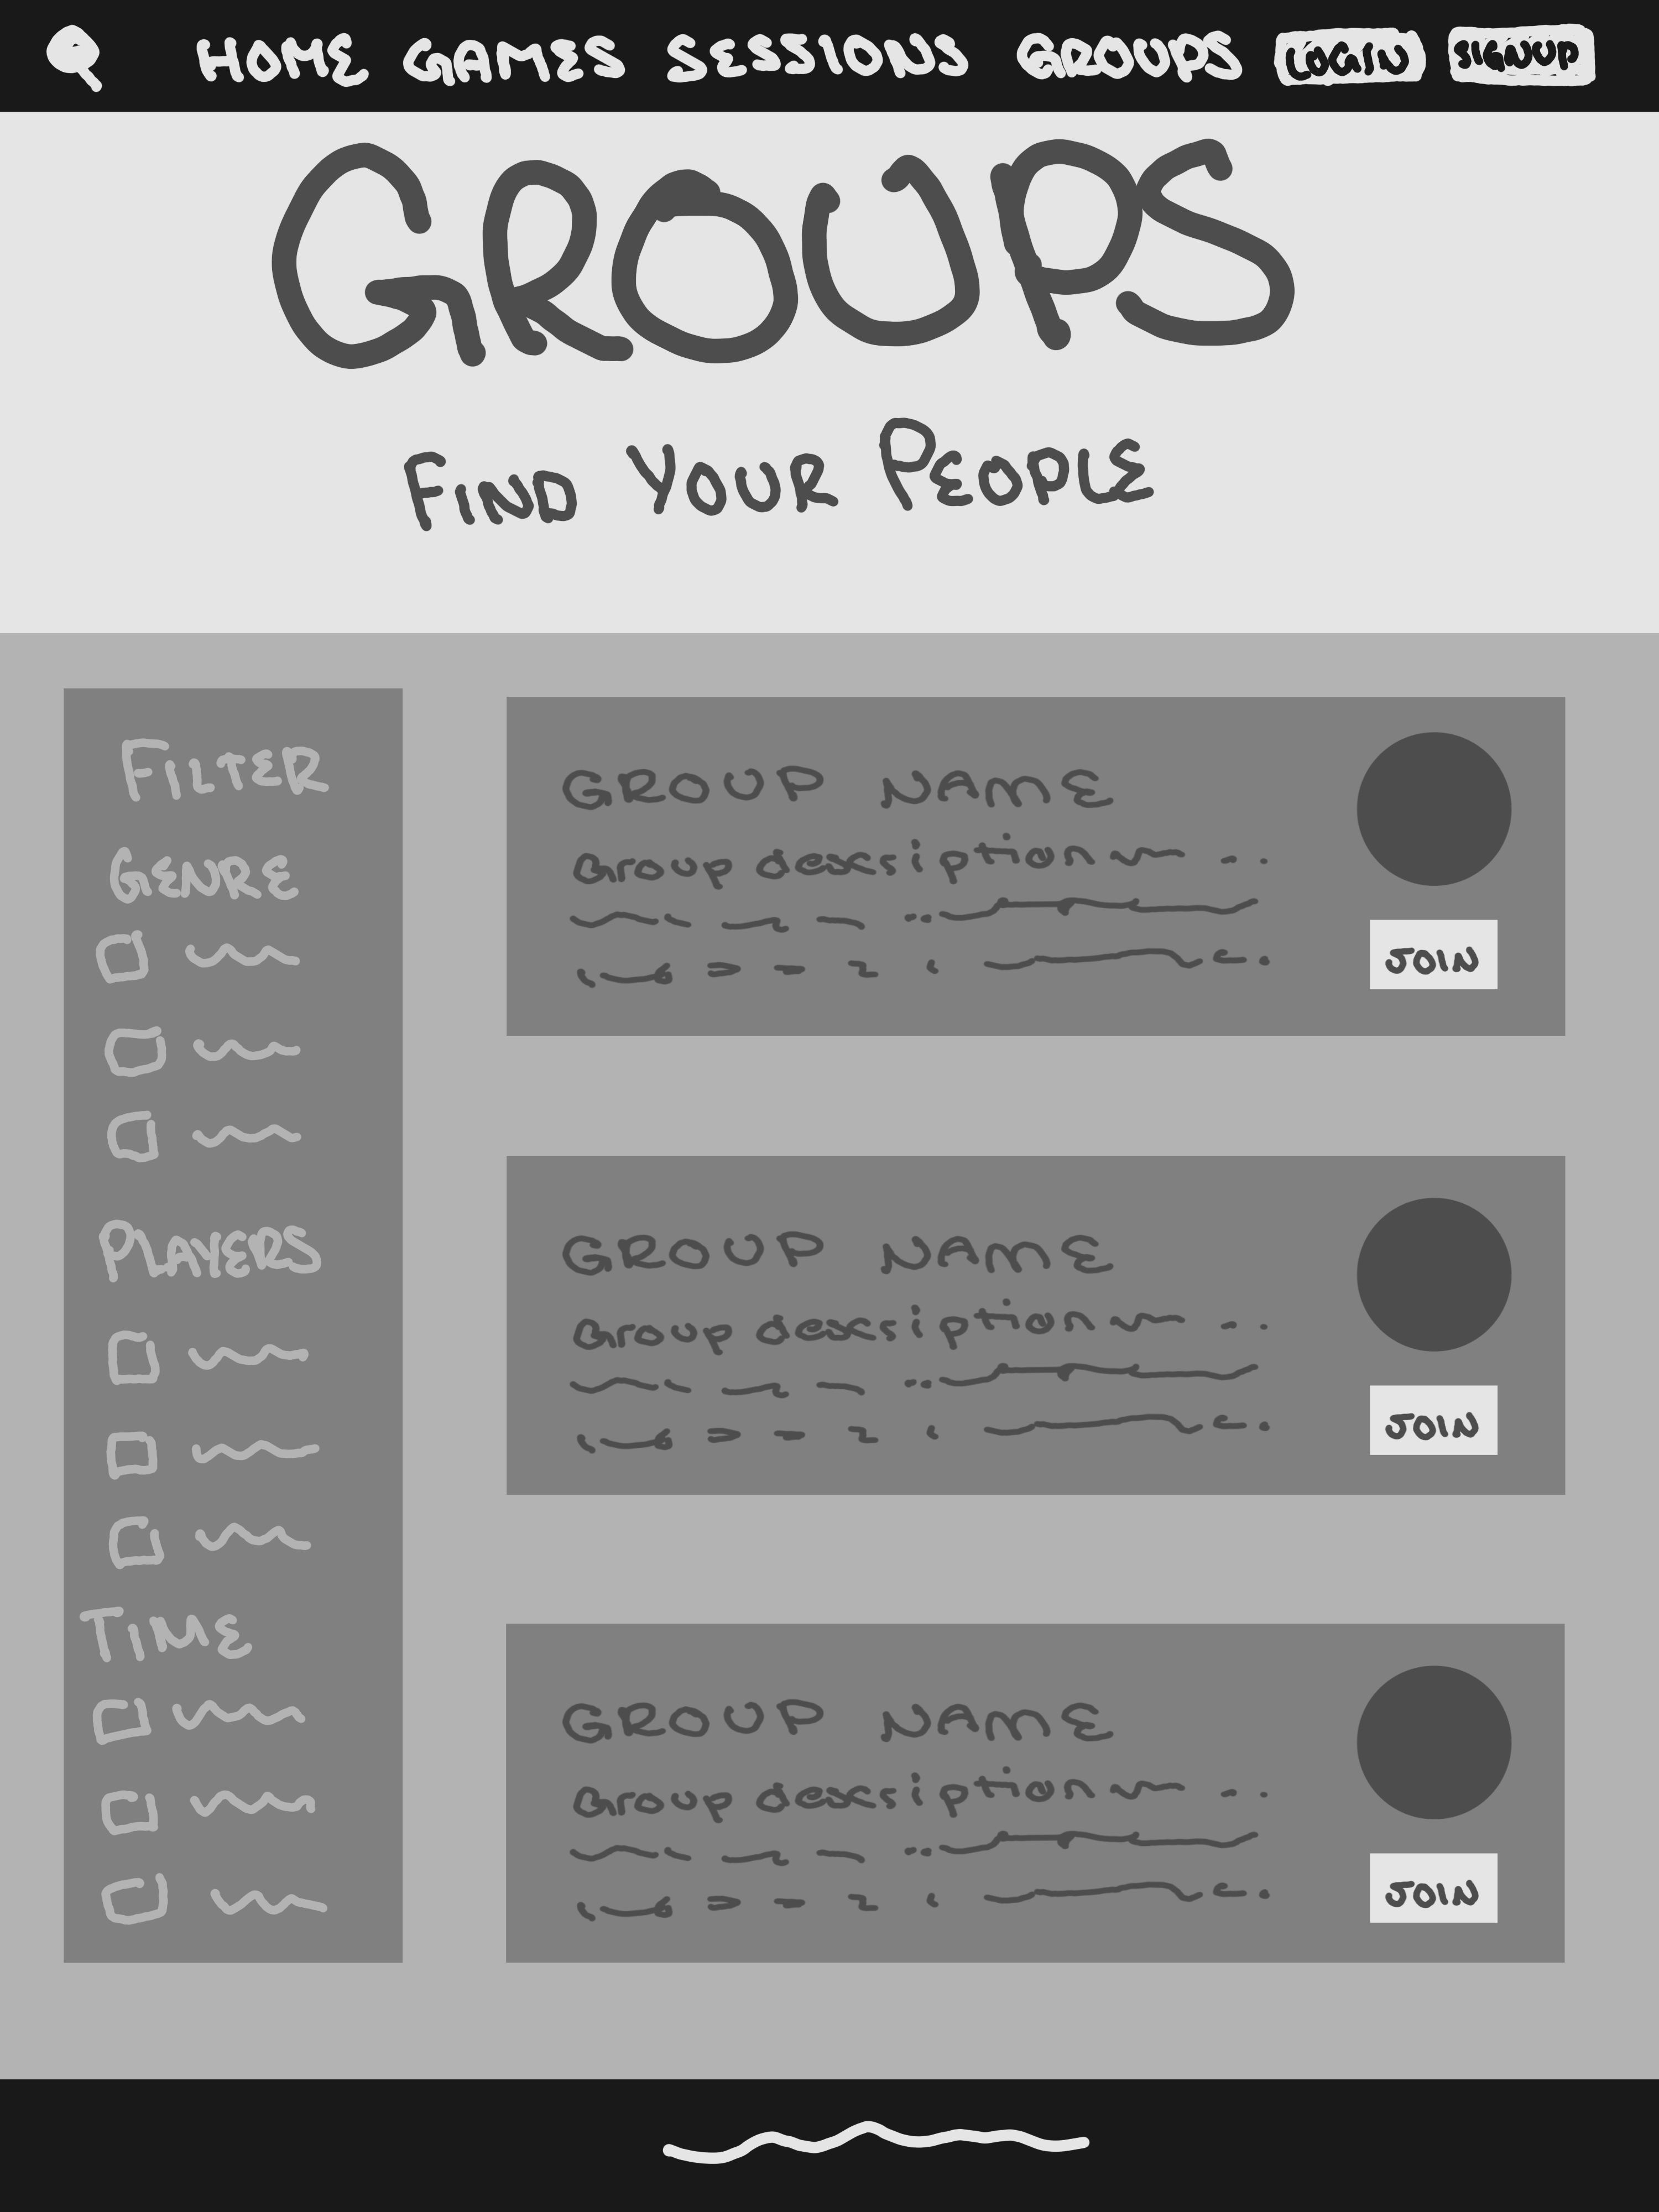 HOME GAMES SESSIONS GROUPS LOGIN SIGNUP
GROUPS
FIND YOUR PEOPLE
FILTER
GENRE
PLAYERS
TIME
GROUP NAME
Group description
JOIN
GROUP NAME
Group description
JOIN
GROUP NAME
Group description
JOIN